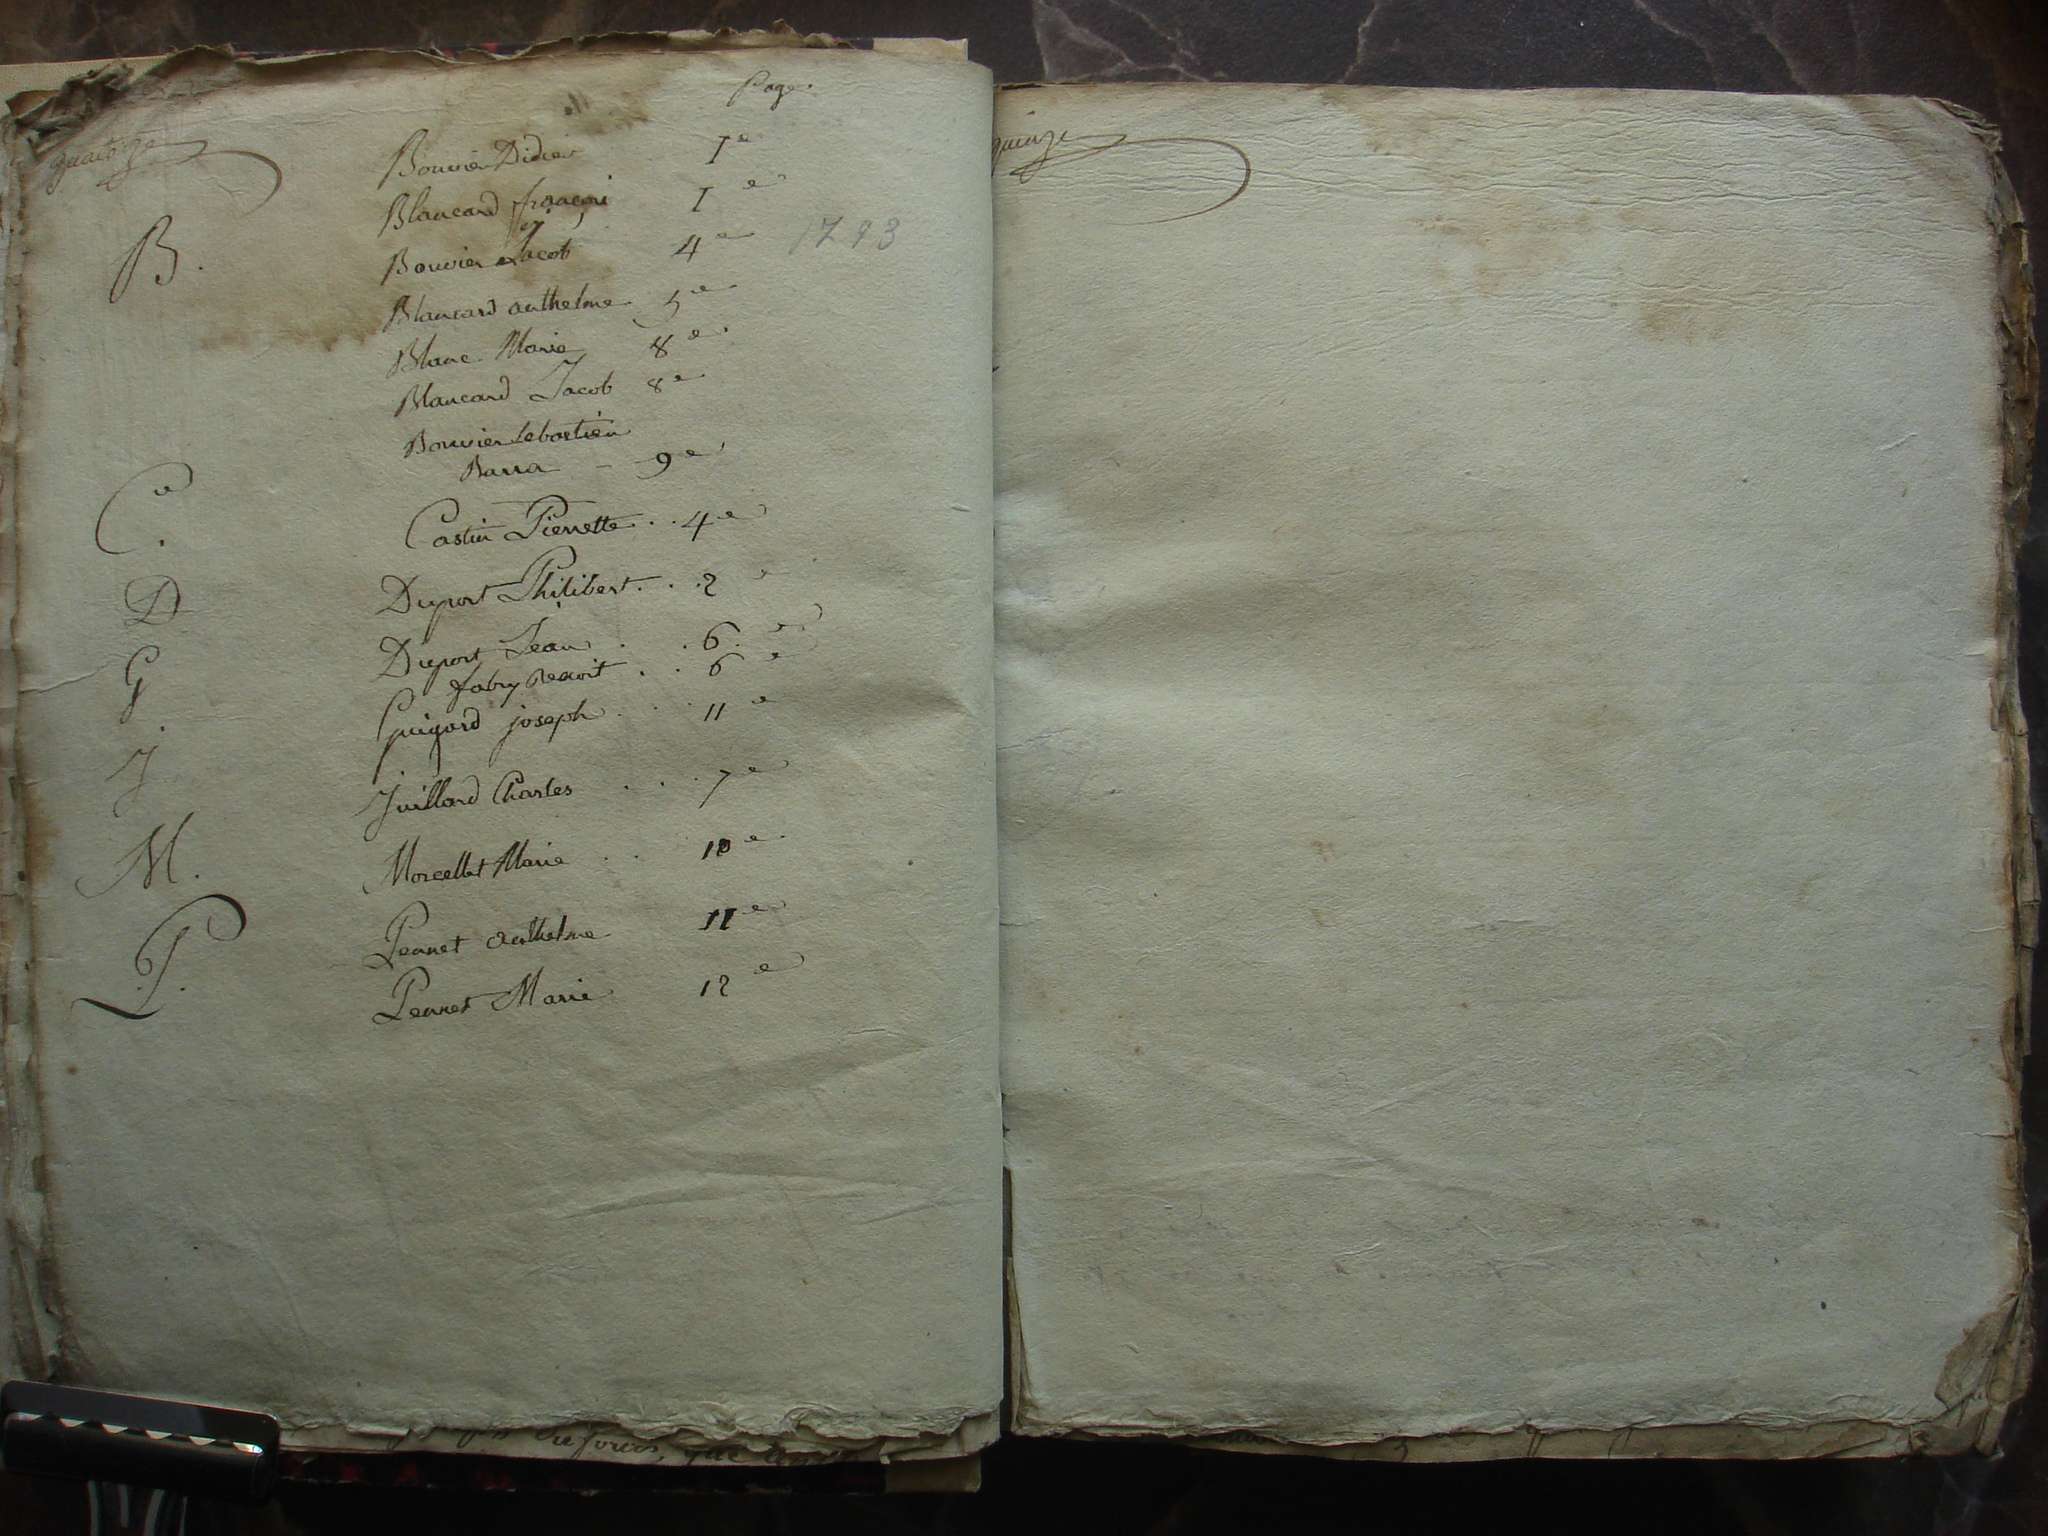 Page.
quatorze
Bouvier Didier 1e
Blancard françoi 1e
B. Bouvier Jacob 4e 1793
Blancard anthelme 5e
Blanc Marie 8e
Blancard Jacob 8e
Bouvier Sebastien
Barra - 9e
C. Castin Pierrette . . 4e
D Duport Philibert . . . 2e
Duport Jean . . 6. e
fabry Benoit . . 6e
G. Guigard joseph . . . 11e
J Juillard Charles . . . 7e
M. Morcellet Marie . . 10e
P. Pennet anthelme 11e
Pennet Marie 12e
quinze